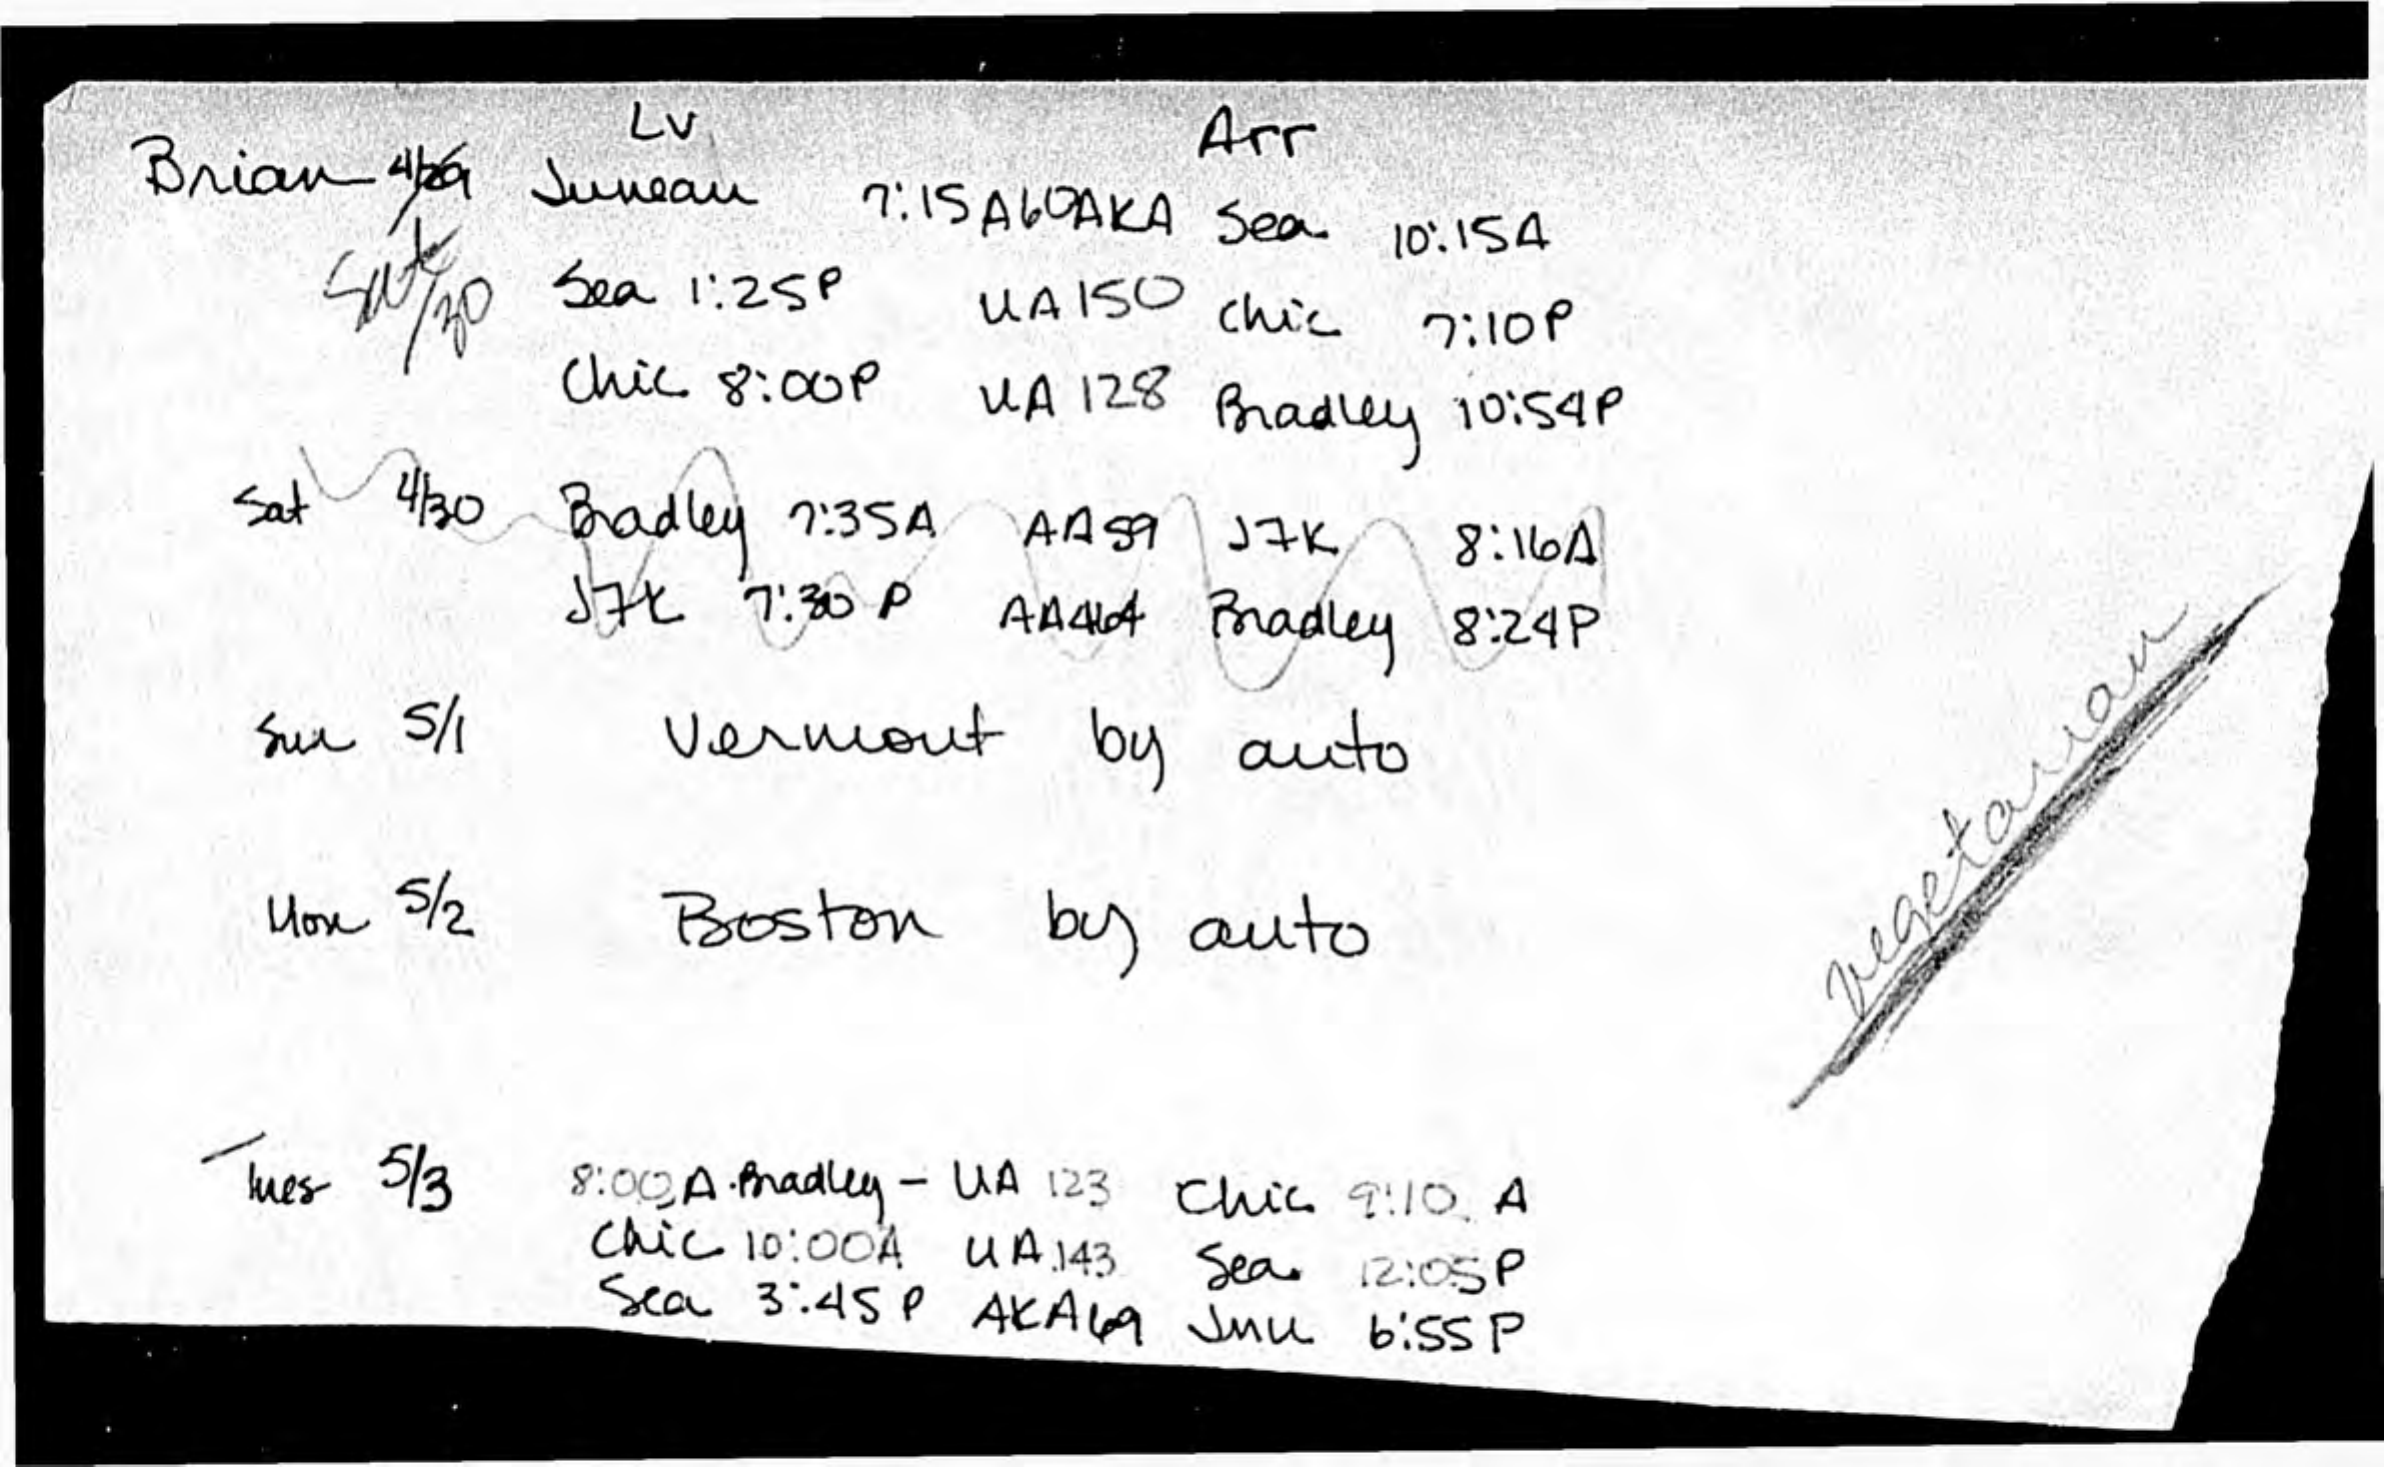 Lv Arr
Brian 4/29 Juneau 7:15A 60AKA Sea 10:15A
Sat 4/30 Sea 1:25P UA150 Chic 7:10P
Chic 8:00P UA128 Bradley 10:54P
Sat 4/30 Bradley 7:35A AA59 J7K 8:16A
J7K 7:30P AA464 Bradley 8:24P
Sun 5/1 Vermont by auto
vegetarian
Mon 5/2 Boston by auto
Tues 5/3 8:00A Bradley - UA 123 Chic 9:10 A
Chic 10:00A UA 143 Sea 12:05P
Sea 3:45P AKA69 Jnu 6:55P